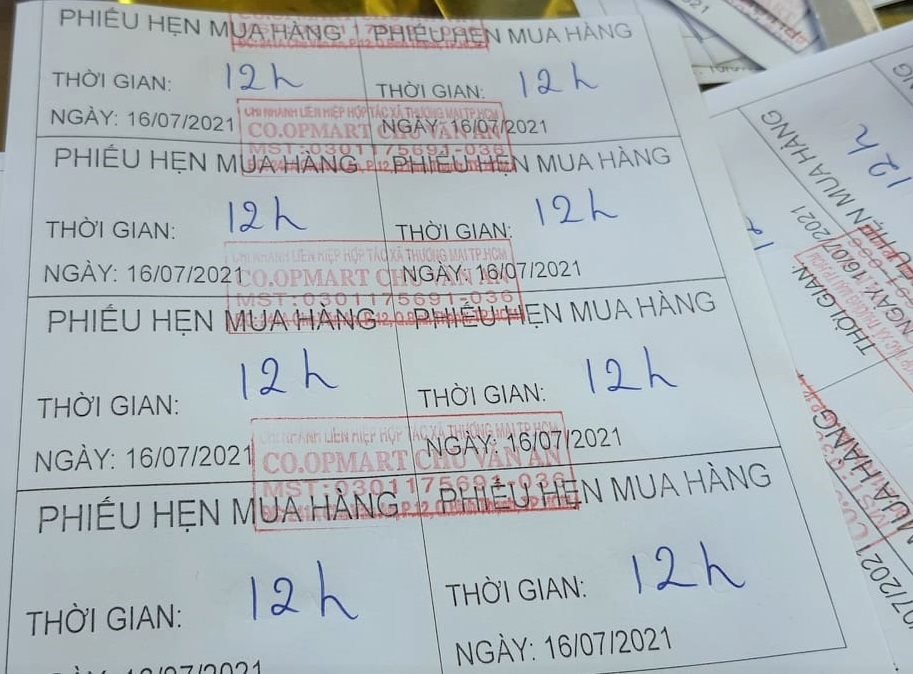 PHIẾU HẸN MUA HÀNG PHIẾU HẸN MUA HÀNG
THỜI GIAN: 12h THỜI GIAN: 12h
NGÀY: 16/07/2021 NGÀY: 16/07/2021
CHI NHÁNH LIÊN HIỆP HỢP TÁC XÃ THƯƠNG MẠI TP.HCM
CO.OPMART CHU VĂN AN
MST:0301175691-036
PHIẾU HẸN MUA HÀNG PHIẾU HẸN MUA HÀNG
THỜI GIAN: 12h THỜI GIAN: 12h
NGÀY: 16/07/2021 NGÀY: 16/07/2021
CHI NHÁNH LIÊN HIỆP HỢP TÁC XÃ THƯƠNG MẠI TP.HCM
CO.OPMART CHU VĂN AN
MST:0301175691-036
PHIẾU HẸN MUA HÀNG PHIẾU HẸN MUA HÀNG
THỜI GIAN: 12h THỜI GIAN: 12h
NGÀY: 16/07/2021 NGÀY: 16/07/2021
CHI NHÁNH LIÊN HIỆP HỢP TÁC XÃ THƯƠNG MẠI TP.HCM
CO.OPMART CHU VĂN AN
MST:0301175691-036
PHIẾU HẸN MUA HÀNG PHIẾU HẸN MUA HÀNG
THỜI GIAN: 12h THỜI GIAN: 12h
NGÀY: 16/07/2021
MUA HÀNG
12h
THỜI GIAN:
NGÀY: 16/07/2021
HẸN MUA HÀNG
12h
MUA HÀNG
07/2021